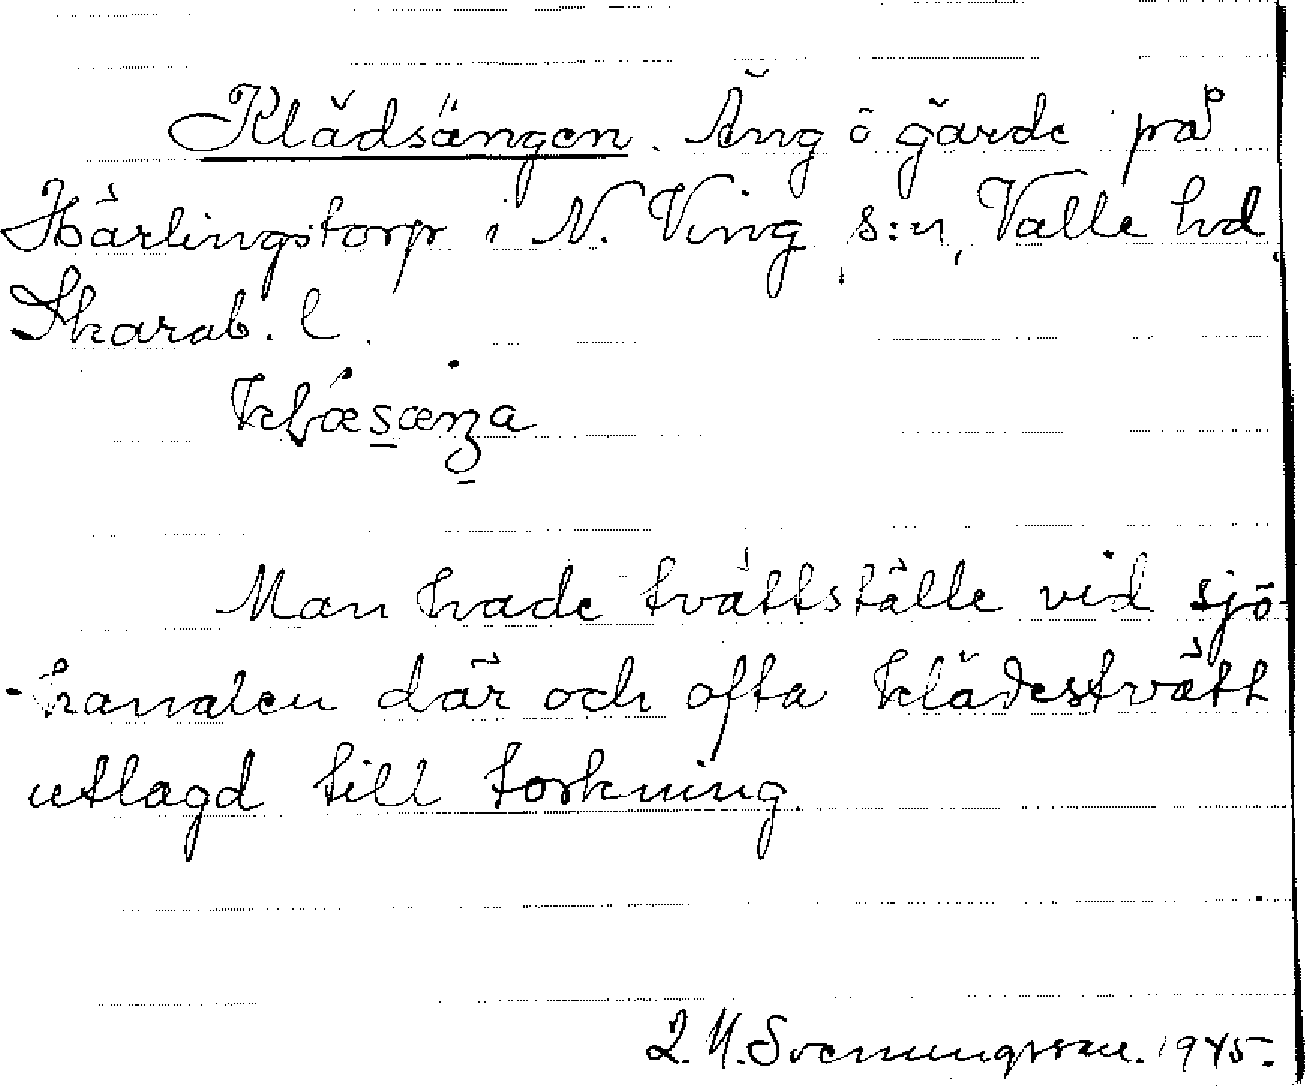 Klädsängen. Äng ö gärde på
Härlingstorp i N. Ving s:n, Valle hd,
Skarab. l.
Man hade tvättställe vid sjö-
-kanalen där och ofta klädestvätt
utlagd till torkning.
Svenungsson. 1945.